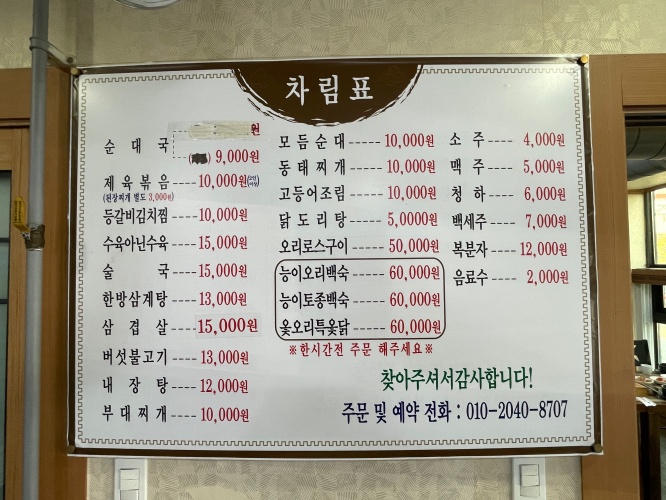 차림표
원
순대국 9,000원
제육볶음 ---- 10,000원
(된장찌개 별도 3,000원)
등갈비김치찜 ---- 10,000원
수육아닌수육 ---- 15,000원
술국 ---- 15,000원
한방삼계탕 ---- 13,000원
삼겹살 ---- 15,000원
버섯불고기 ---- 13,000원
내장탕 ---- 12,000원
부대찌개 ---- 10,000원
모듬순대 ----- 10,000원
동태찌개 ----- 10,000원
고등어조림 ---- 10,000원
닭도리탕 ----- 5,0000원
오리로스구이 ---- 50,000원
능이오리백숙 ---- 60,000원
능이토종백숙 ---- 60,000원
옻오리특옻닭 ---- 60,000원
※한시간전 주문 해주세요※
소주 ---- 4,000원
맥주 ---- 5,000원
청하 ---- 6,000원
백세주 ---- 7,000원
복분자 ---- 12,000원
음료수 ---- 2,000원
찾아주셔서감사합니다!
주문 및 예약 전화 : 010-2040-8707